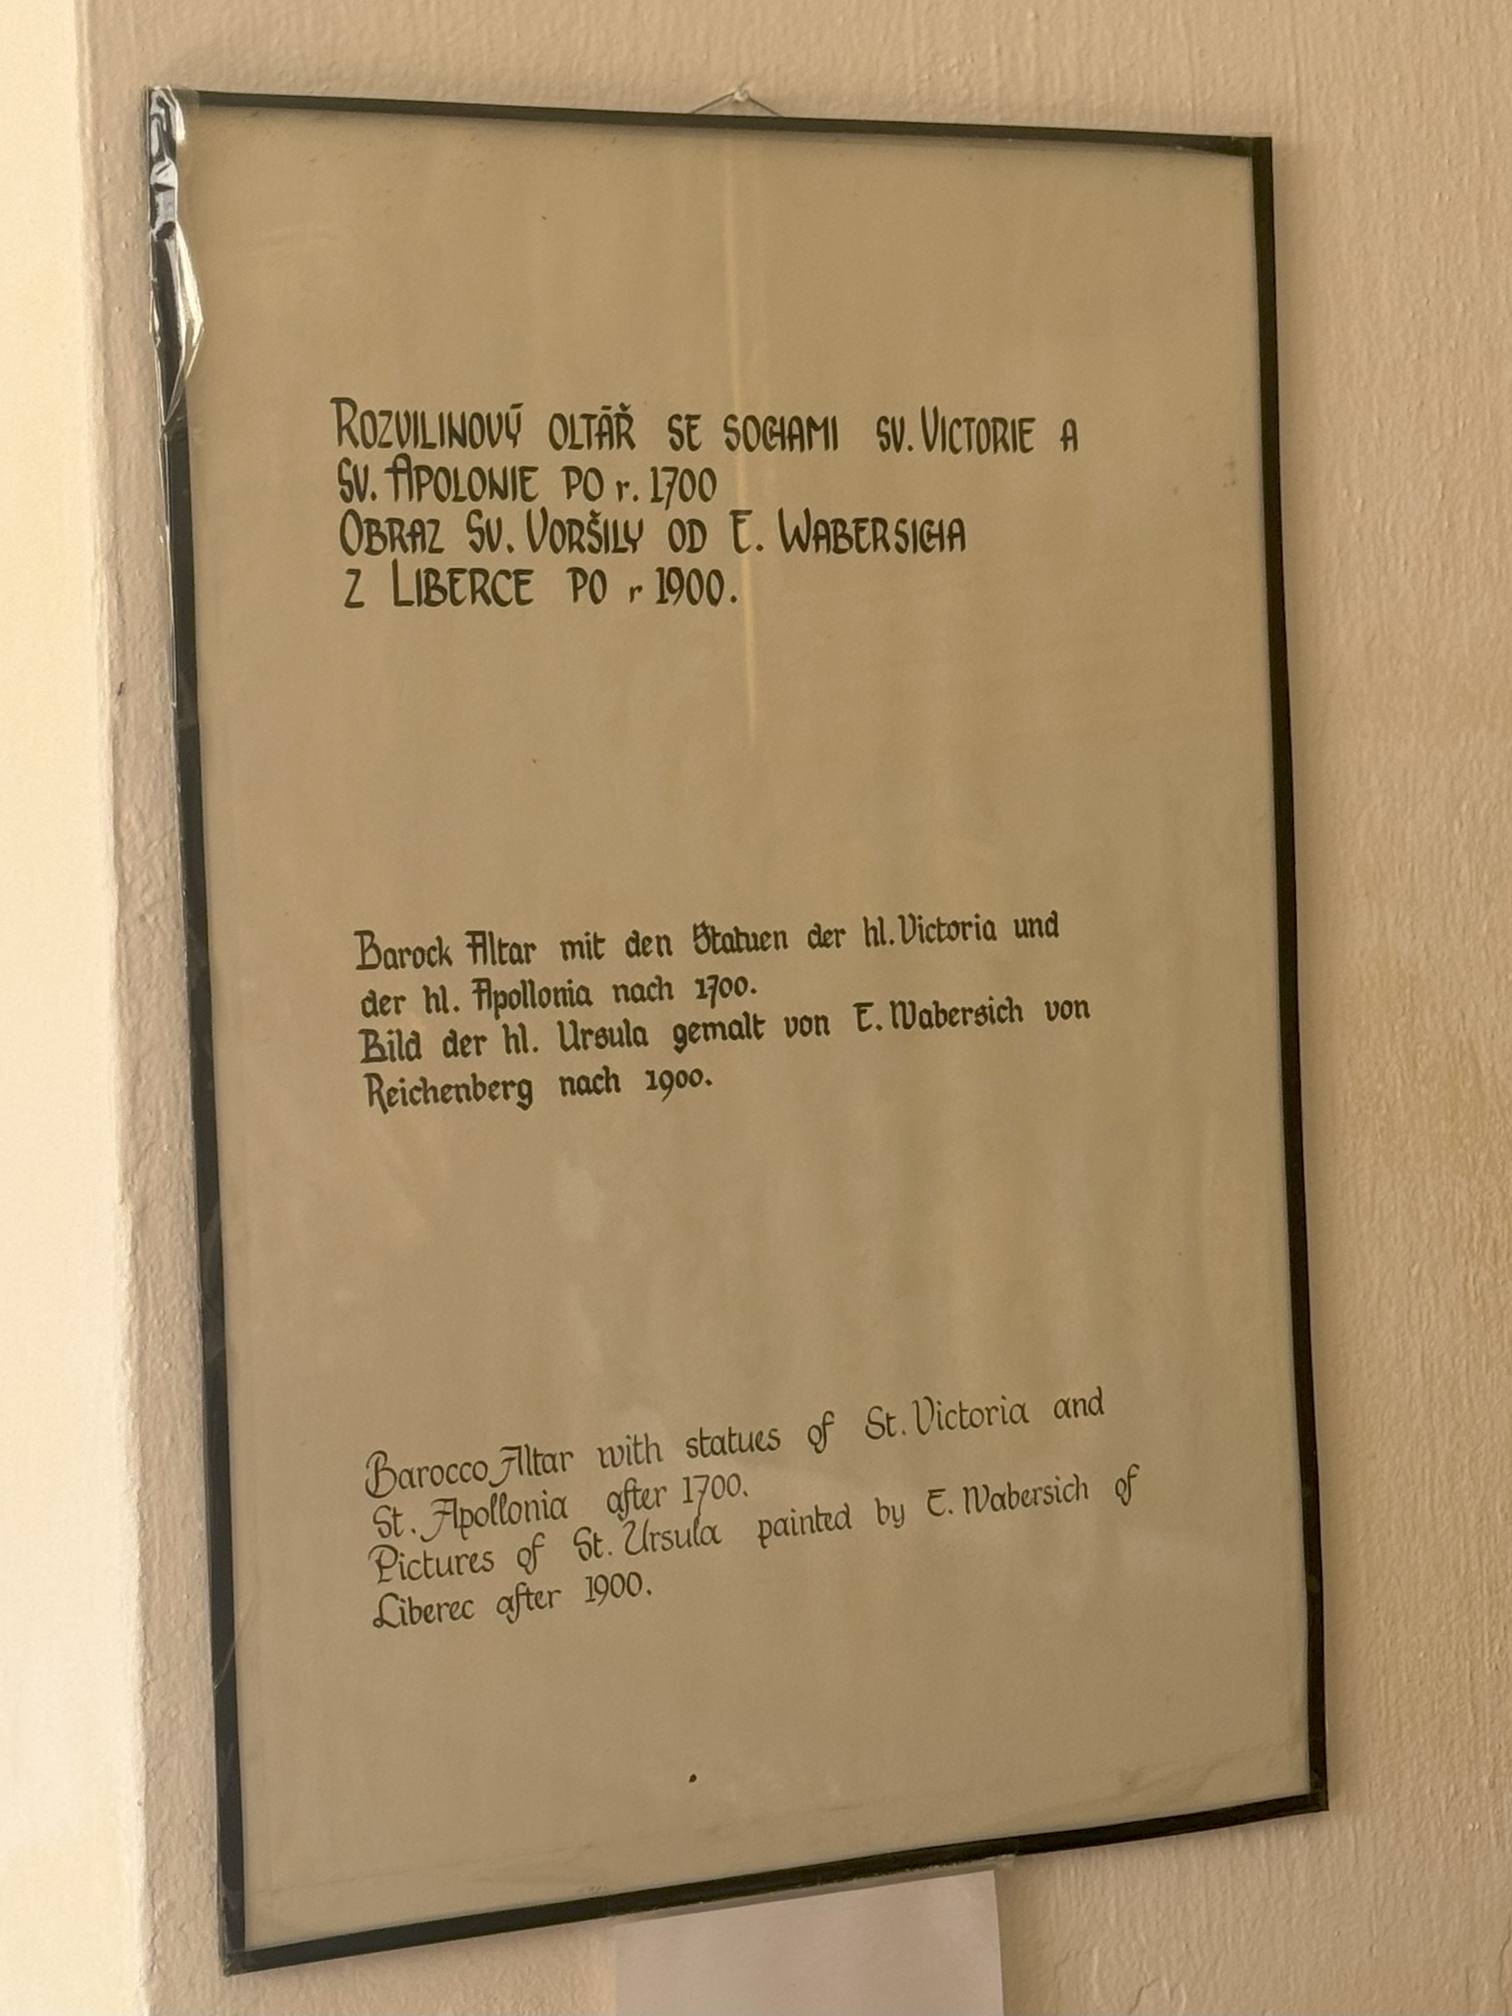 ROZVILINOVÝ OLTÁŘ SE SOCHAMI SV. VICTORIE A
SV. APOLONIE PO r. 1700
OBRAZ SV. VORŠILY OD E. WABERSICHA
Z LIBERCE PO r 1900.
Barock Altar mit den Statuen der hl. Victoria und
der hl. Apollonia nach 1700.
Bild der hl. Ursula gemalt von E. Wabersich von
Reichenberg nach 1900.
Barocco Altar with statues of St. Victoria and
St. Apollonia after 1700.
Pictures of St. Ursula painted by E. Wabersich of
Liberec after 1900.